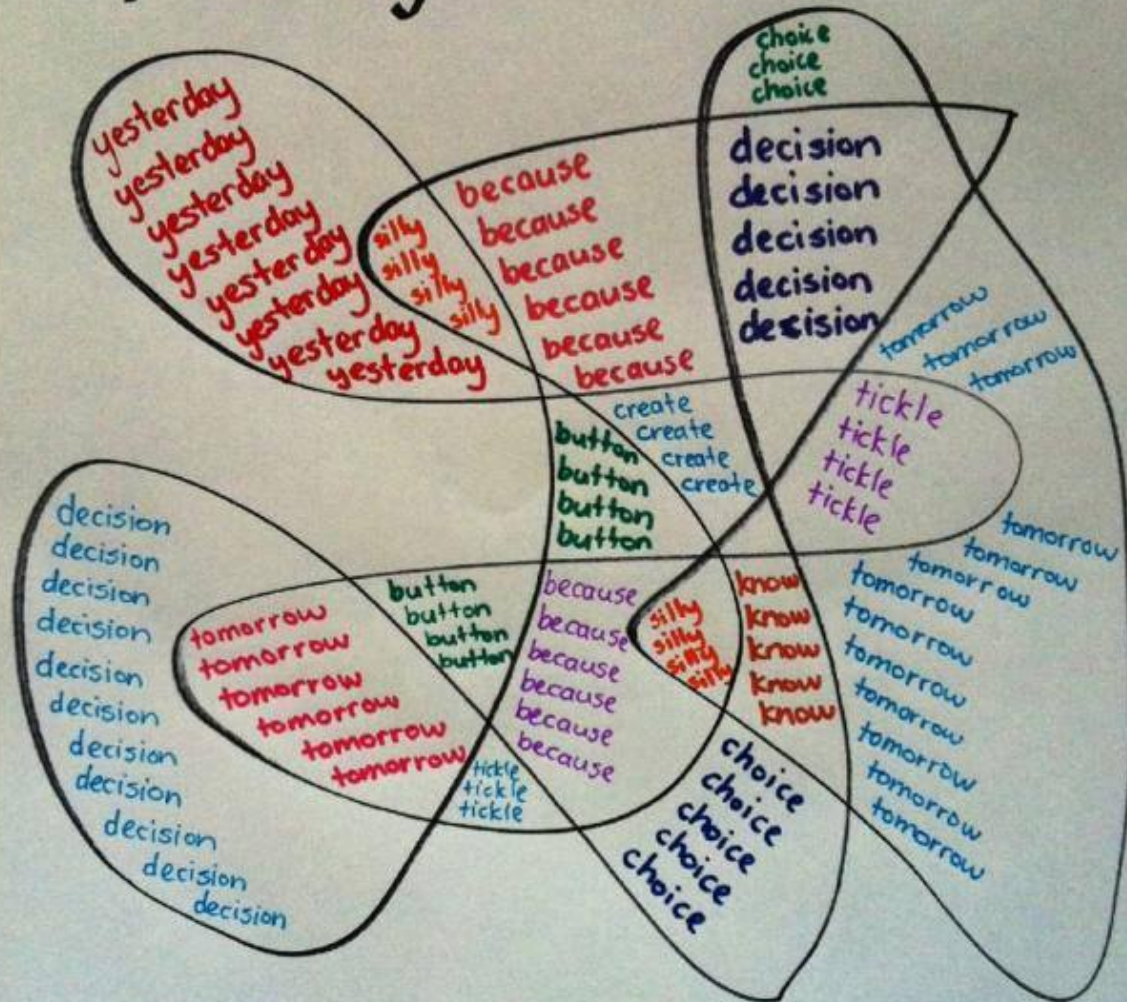 choice
choice
choice
yesterday
yesterday
yesterday
yesterday
yesterday
yesterday
yesterday
yesterday
silly
silly
silly
silly
because
because
because
because
because
because
decision
decision
decision
decision
decision
tomorrow
tomorrow
tomorrow
create
create
create
create
button
button
button
button
tickle
tickle
tickle
tickle
decision
decision
decision
decision
decision
decision
decision
decision
decision
decision
decision
tomorrow
tomorrow
tomorrow
tomorrow
tomorrow
tomorrow
button
button
button
button
because
because
because
because
because
because
silly
silly
silly
silly
know
know
know
know
know
tomorrow
tomorrow
tomorrow
tomorrow
tomorrow
tomorrow
tomorrow
tomorrow
tomorrow
tomorrow
tickle
tickle
tickle
choice
choice
choice
choice
choice